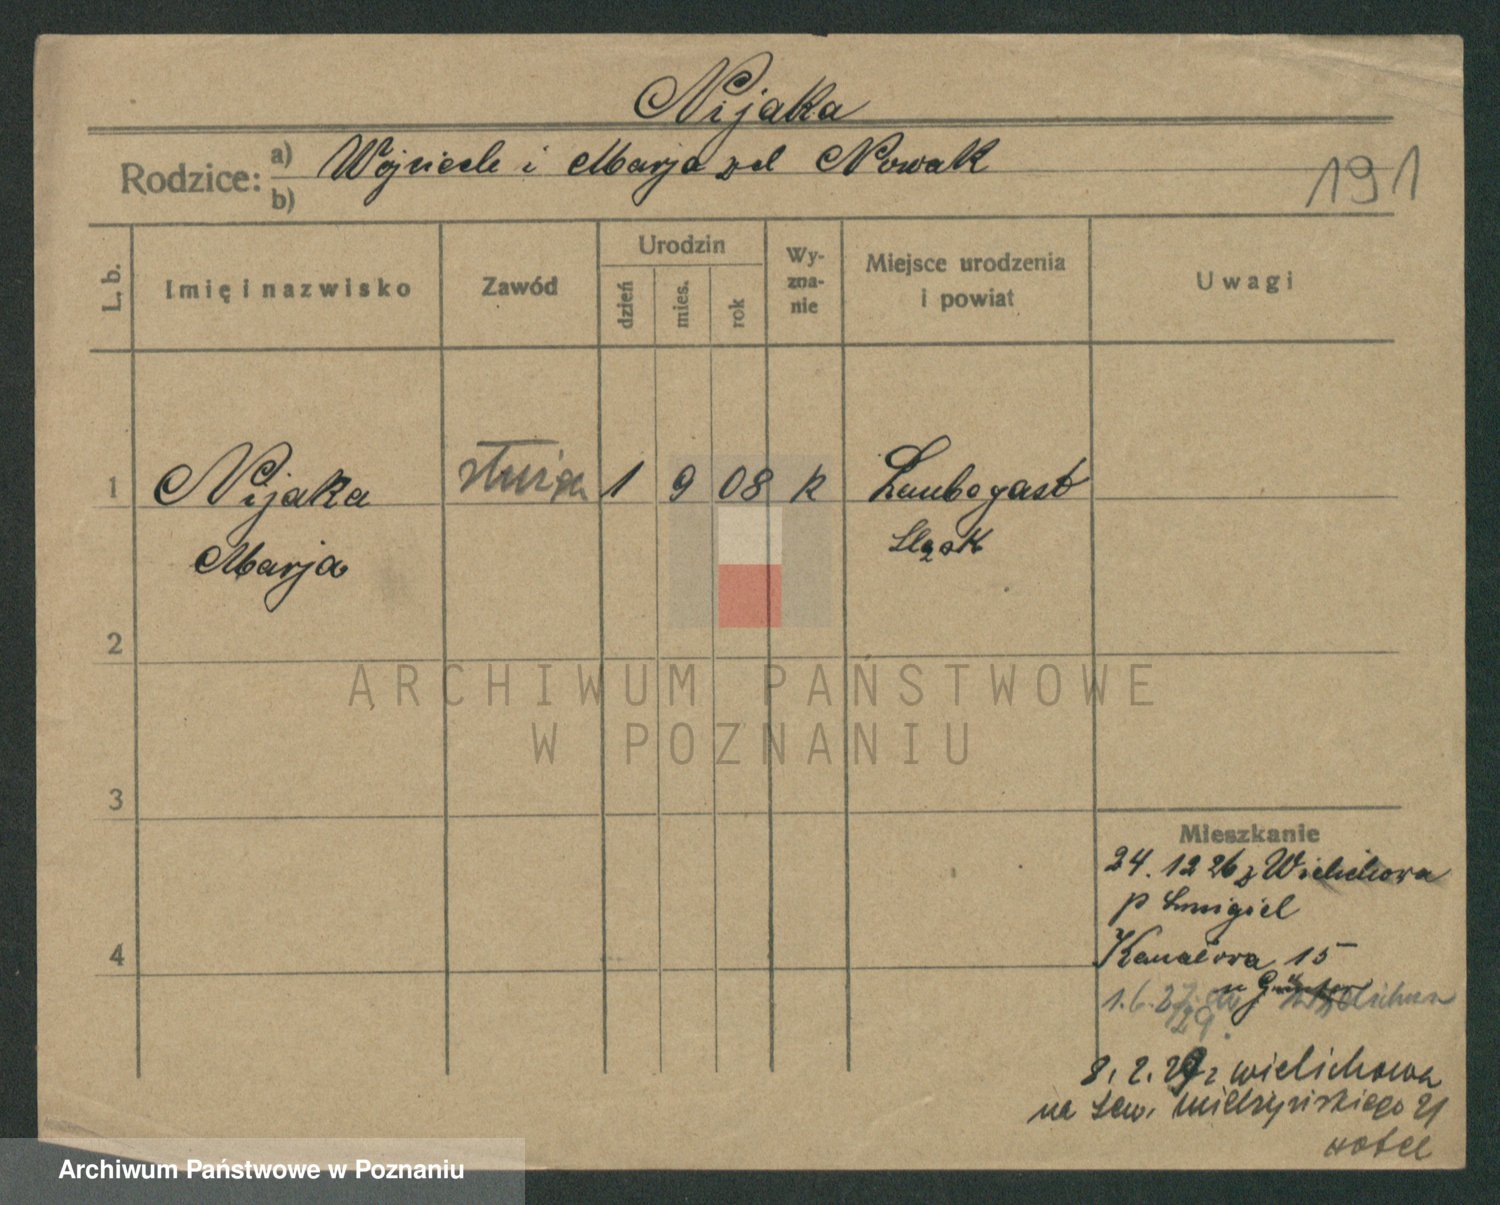 Nijaka
Rodzice: a) Wojciech i Marja zd Nowak
b)
191
L. b.
Imię i nazwisko
Zawód
Urodzin
dzień
mies.
rok
Wy-
zna-
nie
Miejsce urodzenia
i powiat
Uwagi
1 Nijaka służąca 1 9 08 k Laubegast
Marja Śląsk
2
ARCHIWUM PAŃSTWOWE
W POZNANIU
3
Mieszkanie
24. 12 26 z Wielichowa
p Śmigiel
4
Kanałowa 15
u
1.6.27 do Wielichowa
29.
8. 2. 29 z Wielichowa
na Sew. Mielżyńskiego 21
hotel
Archiwum Państwowe w Poznaniu